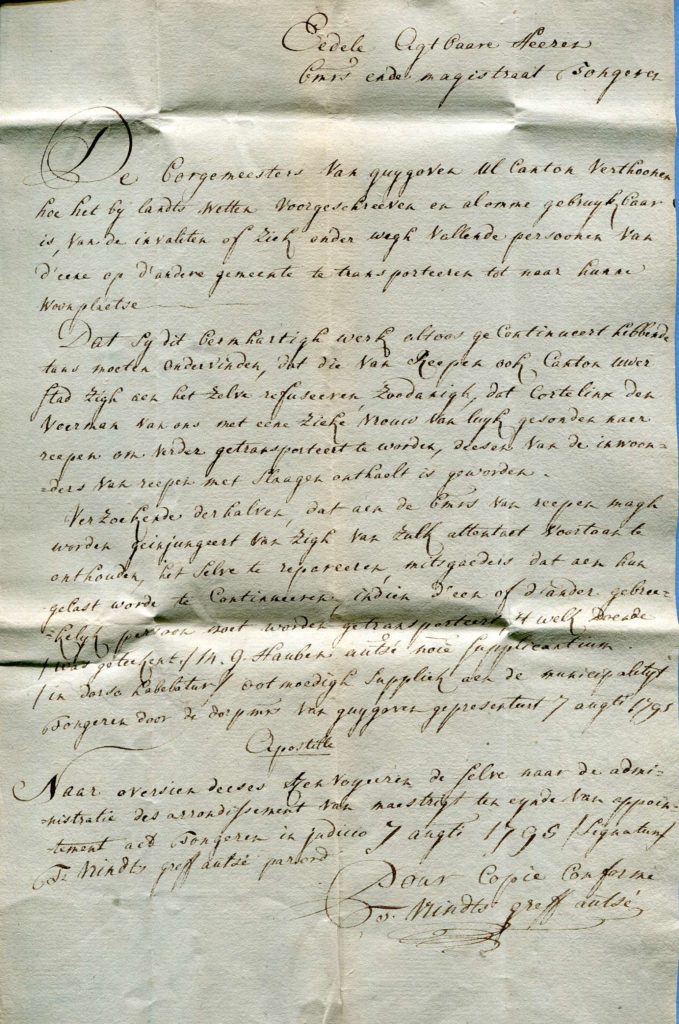 Eedele Agtbaare Heeren
Bmrs ende magistraat Tongeren
De borgemeesters van guygoven Ul Canton Verthoonen
hoe het bij landts wetten voorgeschreeven en alomme gebruykbaar
is, van de invaliten of ziek onder wegh vallende persoonen van
d'eene op d'andere gemeente te transporteeren tot naer hunne
woonplaetse
Dat sy dit bermhartigh werk altoos geContinueert hebbende
tans moeten ondervinden, dat die van Reepen ook Canton uwer
stad zigh aen het zelve refuseeren zoodanigh, dat Cortelinx den
Voerman van ons met eene zieke vrouw van luyk gesonden naer
reepen om verder getransporteert te worden, deesen van de inwoon-
-ders van reepen met slaagen onthaelt is geworden.
Verzoekende derhalven, dat aen de Bmrs van reepen magh
worden geinjungeert van zigh van zulk attentaet voortaan te
onthouden, het selve te repareeren, mitsgaeders dat aen hun
gelast worde te Continueeren, indien d'een of d'ander gebree-
-kelyk persoon moet worden getransporteert, 't welk doende
/ was geteekent / M. G. Hauben autsé noïe supplicantium.
/ in dorso habebatur / ootmoedigh suppliek aen de municipalityt
Tongeren door de dorpmrs van guygoven gepresenteert 7 augti 1795
Apostille
Naar oversien deeses Renvoyeeren de selve naar de admi-
-nistratie des arrondissement van maestrigt ten eynde van appoin-
-tement act Tongeren in judicio 7 augti 1795 / Signatum /
Te Vrindts greff autsé par ord
Pour Copie Conforme
Te Vrindts greff autsé